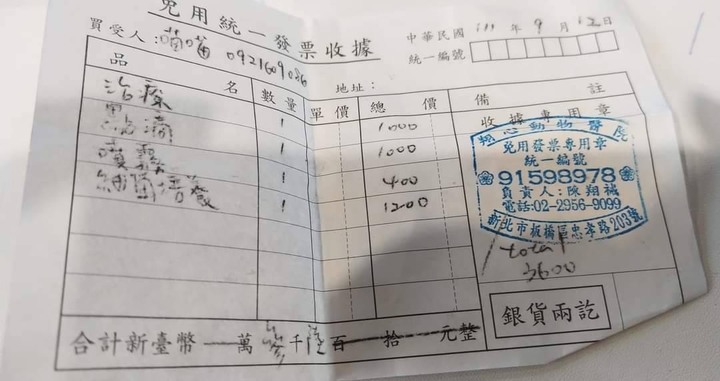 免用統一發票收據
中華民國 111 年 9 月 12 日
買受人：喵喵 0921609086
統一編號
地址：
品名 數量 單價 總價 備註
收據專用章
治療 1 1000
點滴 1 1000
噴霧 1 400
細菌培養 1 1200
翔心動物醫院
免用發票專用章
統一編號
91598978
負責人：陳翔禎
電話:02-2956-9099
新北市板橋區忠孝路203號
total
3600
銀貨兩訖
合計新臺幣 萬 參仟陸百 拾 元整